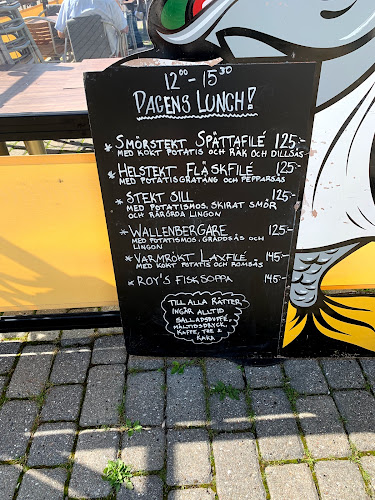 12⁰⁰ - 15³⁰
DAGENS LUNCH!
* SMÖRSTEKT SPÄTTAFILÉ 125:-
MED KOKT POTATIS OCH RÄK OCH DILLSÅS
* HELSTEKT FLÄSKFILÉ 125:-
MED POTATISGRATÄNG OCH PEPPARSÅS
* STEKT SILL 125:-
MED POTATISMOS, SKIRAT SMÖR
OCH RÅRÖRDA LINGON
* WALLENBERGARE 125:-
MED POTATISMOS, GRÄDDSÅS OCH
LINGON
* VARMRÖKT LAXFILÉ 145:-
MED KOKT POTATIS OCH ROMSÅS
* ROY'S FISKSOPPA 145:-
TILL ALLA RÄTTER
INGÅR ALLTID
SALLADSBUFFÉ,
MÅLTIDSDRYCK,
KAFFE, THE &
KAKA